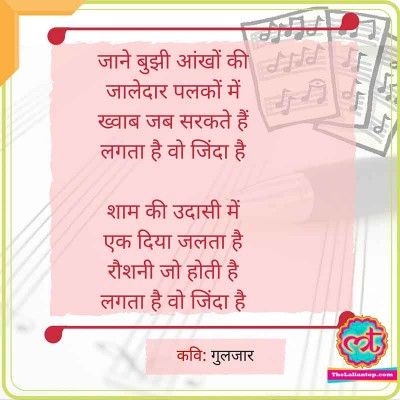 जाने बुझी आंखों की
जालेदार पलकों में
ख्वाब जब सरकते हैं
लगता है वो जिंदा है
शाम की उदासी में
एक दिया जलता है
रौशनी जो होती है
लगता है वो जिंदा है
कवि: गुलजार
TheLallantop.com